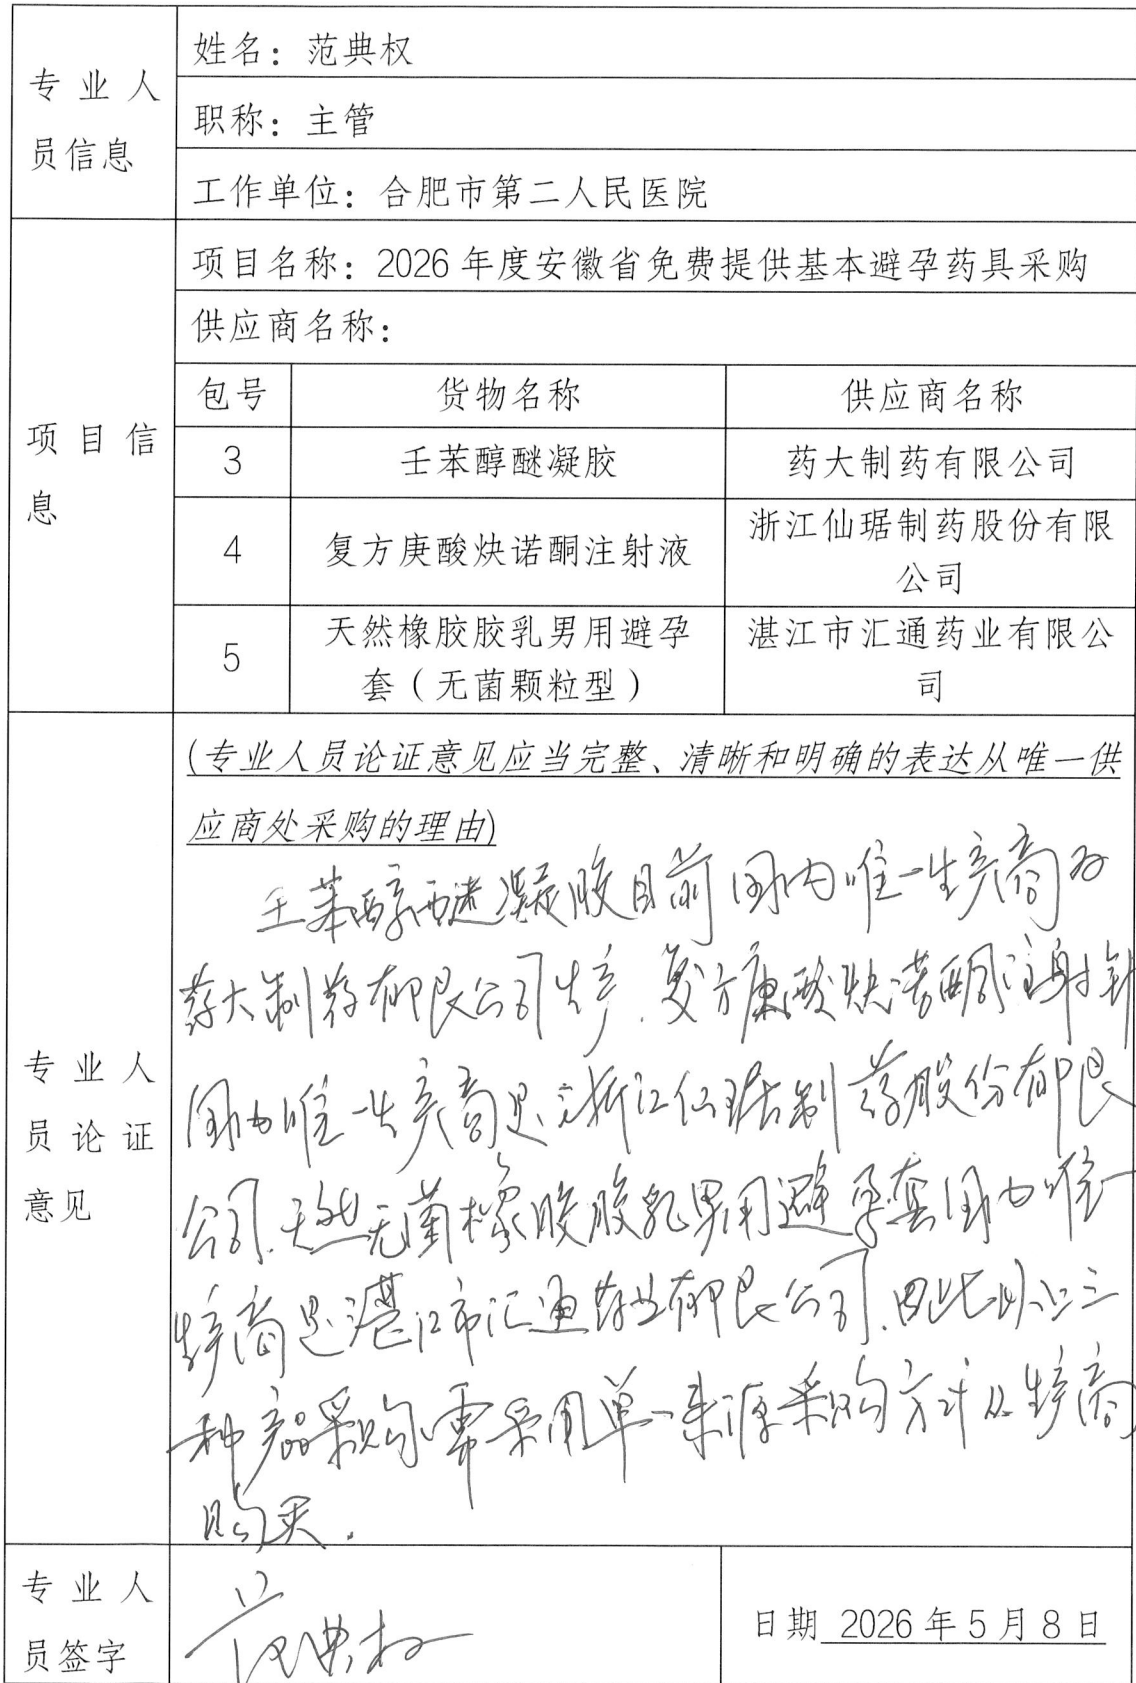 专业人员信息
姓名：范典权
职称：主管
工作单位：合肥市第二人民医院
项目信息
项目名称：2026年度安徽省免费提供基本避孕药具采购
供应商名称：
包号 货物名称 供应商名称
3 壬苯醇醚凝胶 药大制药有限公司
4 复方庚酸炔诺酮注射液 浙江仙琚制药股份有限公司
5 天然橡胶胶乳男用避孕套（无菌颗粒型） 湛江市汇通药业有限公司
专业人员论证意见
(专业人员论证意见应当完整、清晰和明确的表达从唯一供
应商处采购的理由)
壬苯醇醚凝胶目前国内唯一生产商为
药大制药有限公司生产.复方庚酸炔诺酮注射针
国内唯一生产商是浙江仙琚制药股份有限
公司.天然无菌橡胶胶乳男用避孕套国内唯一
生产商是湛江市汇通药业有限公司.因此以上三
种产品采购需采用单一来源采购方式从生产商
购买.
专业人员签字
范典权
日期 2026年5月8日